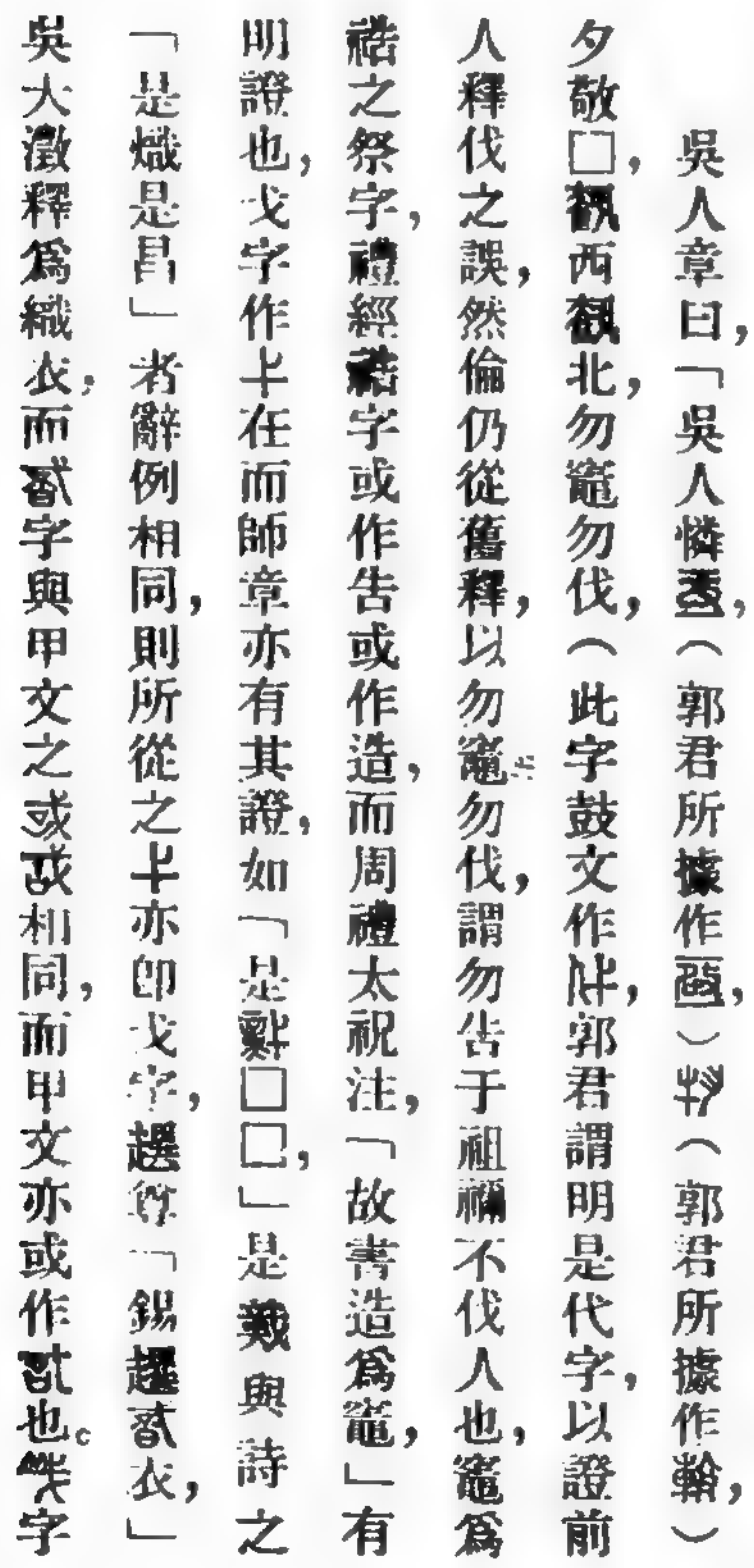 吳人章曰,「吳人憐,(郭君所據作,)(郭君所據作𩏑,)
夕敬□,西北,勿竈勿伐,(此字鼓文作,郭君謂明是代字,以證前
人釋伐之誤,然倫仍從舊釋,以勿竈勿伐,謂勿告于祖禰不伐人也,竈爲
祰之祭字,禮經祰字或作告或作造,而周禮太祝注,「故書造爲竈,」有
明證也,戈字作在而師章亦有其證,如「是□□,」是與詩之
「是熾是昌」者辭例相同,則所從之亦卽戈字,趩尊「錫趩衣,」
吳大澂釋爲織衣,而字與甲文之或相同,而甲文亦或作也。字